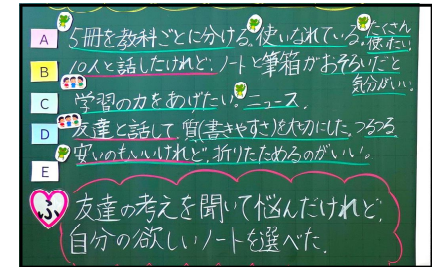 A 5冊を教科ごとに分ける。使いなれている。たくさん使いたい
B 10人と話したけれど、ノートと筆箱がおそろいだと気分がいい。
C 学習の力をあげたい。ニュース.
D 友達と話して、質(書きやすさ)を大切にした。つるつる
E 安いのもいいけれど、折りたためるのがいい。
ふ 友達の考えを聞いて悩んだけれど、
自分の欲しいノートを選べた.